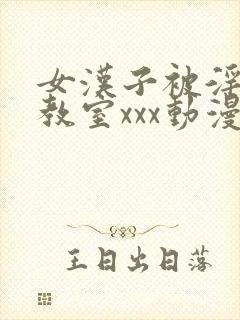 女漢子被淫
教室xxx動漫
王日出日落